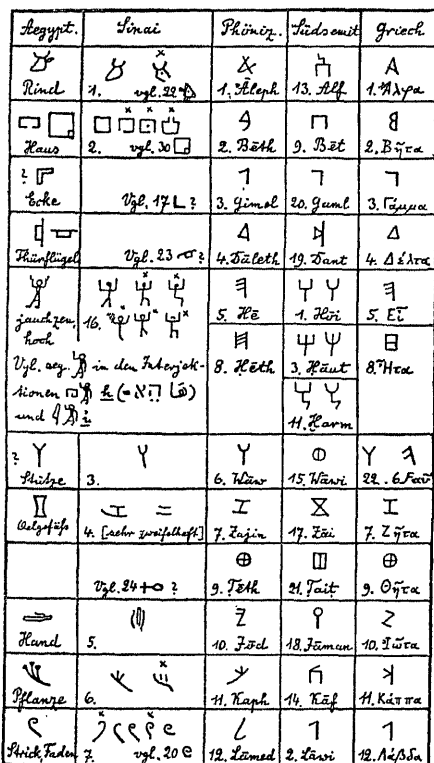 Aegypt. Sinai Phöniz. Südsemit Griech
Rind 1. vgl. 22 1. Āleph 13. Alf 1. Ἄλφα
Haus 2. vgl. 30 2. Bēth 9. Bēt 2. Βῆτα
? Ecke Vgl. 17 L ? 3. Gimel 20. Gaml 3. Γάμμα
Thürflügel Vgl. 23 ? 4. Dāleth 19. Dant 4. Δέλτα
jauchzen, hoch 16. 5. Hē 1. Hōi 5. Εἶ
Vgl. aeg. in den Interjek-
tionen h (= הֵא) 8. Hēth 3. Ḥaut 8. Ἦτα
und i 11. Ḫarm
? Stütze 3. 6. Wāw 15. Wāwi 22. 6. Ϝαῦ
Oelgefäß 4. [sehr zweifelhaft] 7. Zajin 17. Zai 7. Ζῆτα
Vgl. 24 ? 9. Ṭēth 21. Ṭait 9. Θῆτα
Hand 5. 10. Jōd 18. Jaman 10. Ἰῶτα
Pflanze 6. 11. Kaph 14. Kāf 11. Κάππα
Strick, Faden 7. vgl. 20 12. Lāmed 2. Lāwi 12. Λάβδα